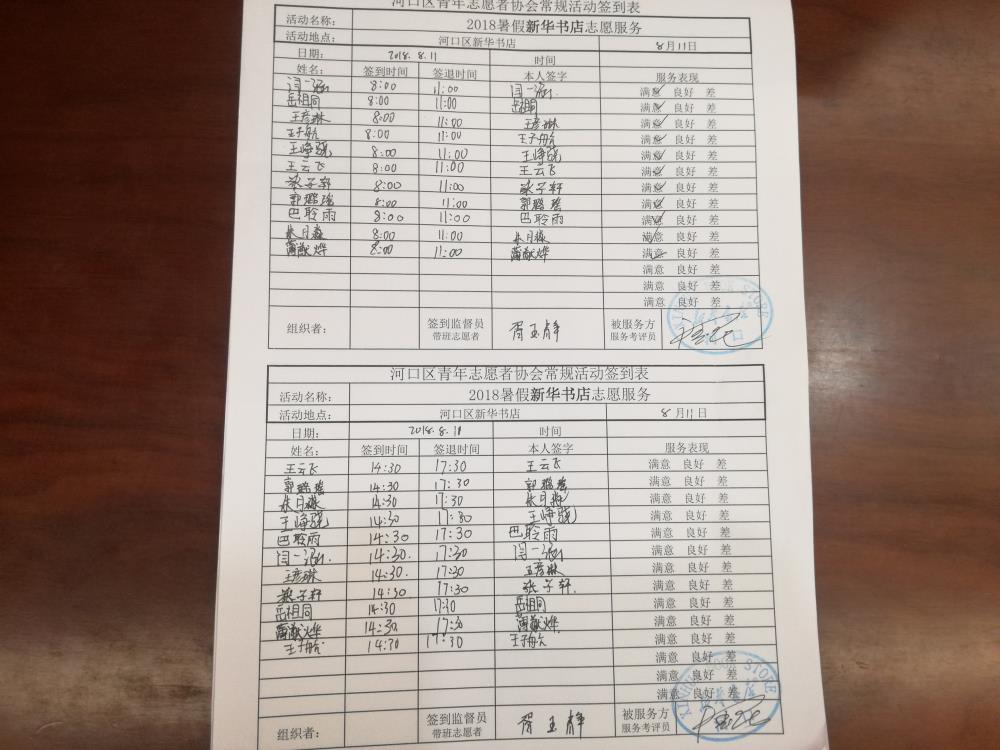 河口区青年志愿者协会常规活动签到表
活动名称： 2018暑假新华书店志愿服务
活动地点： 河口区新华书店 8月11日
日期： 2018.8.11 时间
姓名： 签到时间 签退时间 本人签字 服务表现
闫一涵 8:00 11:00 闫一涵 满意 良好 差
岳相同 8:00 11:00 岳相同 满意 良好 差
王彦琳 8:00 11:00 王彦琳 满意 良好 差
王子航 8:00 11:00 王子航 满意 良好 差
王峥骁 8:00 11:00 王峥骁 满意 良好 差
王云飞 8:00 11:00 王云飞 满意 良好 差
张子轩 8:00 11:00 张子轩 满意 良好 差
郭璐瑶 8:00 11:00 郭璐瑶 满意 良好 差
巴聆雨 8:00 11:00 巴聆雨 满意 良好 差
8:00 11:00 满意 良好 差
8:00 11:00 满意 良好 差
满意 良好 差
满意 良好 差
满意 良好 差
组织者： 签到监督员 带班志愿者 胥玉静 被服务方 服务考评员
河口区青年志愿者协会常规活动签到表
活动名称： 2018暑假新华书店志愿服务
活动地点： 河口区新华书店 8月11日
日期： 2018.8.11 时间
姓名： 签到时间 签退时间 本人签字 服务表现
王云飞 14:30 17:30 王云飞 满意 良好 差
郭璐瑶 14:30 17:30 郭璐瑶 满意 良好 差
14:30 17:30 满意 良好 差
王峥骁 14:30 17:30 王峥骁 满意 良好 差
巴聆雨 14:30 17:30 巴聆雨 满意 良好 差
闫一涵. 14:30. 17:30 闫一涵 满意 良好 差
王彦琳 14:30. 17:30 王彦琳 满意 良好 差
张子轩 14:30 17:30 张子轩. 满意 良好 差
岳相同 14:30 17:30 岳相同 满意 良好 差
14:30 17:30 满意 良好 差
王子航 14:30 17:30 王子航 满意 良好 差
满意 良好 差
满意 良好 差
满意 良好 差
组织者： 签到监督员 带班志愿者 胥玉静 被服务方 服务考评员